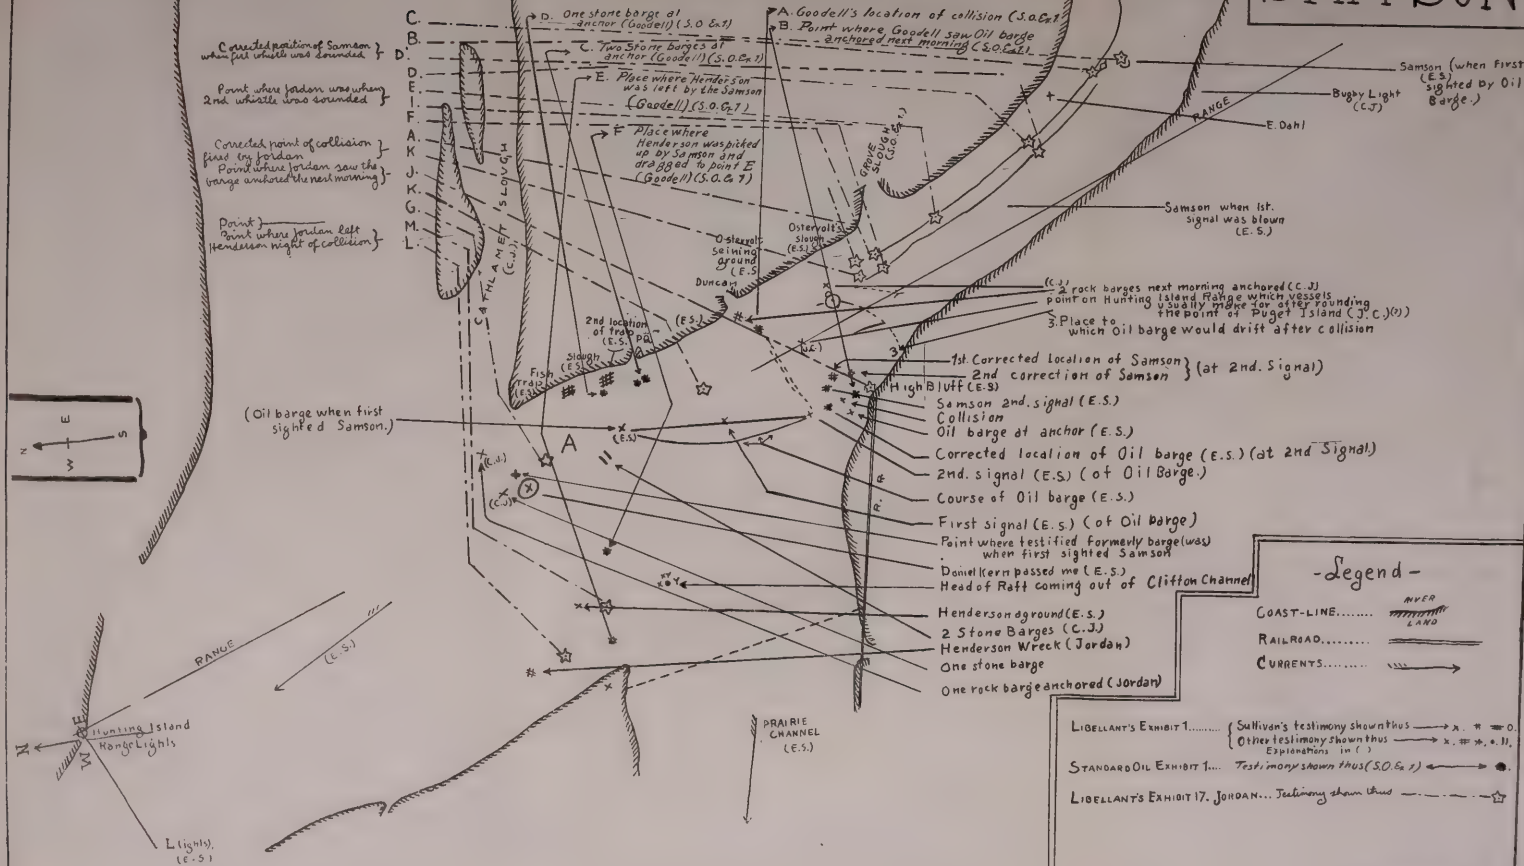 C.
B.
D.
D.
E.
I.
F.
A.
K
J.
K.
G.
M.
L.
Corrected position of Samson
when first whistle was sounded
Point where Jordan was when
2nd whistle was sounded
Corrected point of collision
fixed by Jordan
Point where Jordan saw the
barge anchored the next morning
Point
Point where Jordan left
Henderson night of collision
D. One stone barge at
anchor (Goodell) (S.O. Ex 1)
C. Two Stone barges at
anchor (Goodell) (S.O. Ex 1)
E. Place where Henderson
was left by the Samson
(Goodell) (S.O. Ex 1)
F Place where
Henderson was picked
up by Samson and
dragged to point E
(Goodell) (S.O. Ex 1)
A. Goodell's location of collision (S.O. Ex 1
B. Point where Goodell saw Oil barge
anchored next morning (S.O. Ex 1)
Samson (when first
(E.S.)
sighted by Oil
Barge.)
Bugby Light
(C.J.)
E. Dahl
RANGE
GROVE
SLOUGH
(S.O. Ex 1.)
Samson when 1st.
signal was blown
(E.S.)
CATHLAMET SLOUGH
(C.J.)
Ostervolt
seining
ground
(E.S
Ostervolt's
slough
(E.S.)
Duncan
(E.S.)
2nd location
of trap
(E.S.
PQ
Slough
(E.S.
Fish
Trap
(E.S.)
(C.J.)
2 rock barges next morning anchored (C.J.)
point on Hunting Island Range which vessels
usually make for after rounding
the point of Puget Island (J.C.)(?))
3. Place to
which Oil barge would drift after collision
3
1st. Corrected location of Samson
2nd correction of Samson
(at 2nd. Signal)
High Bluff (E.S)
Samson 2nd. signal (E.S.)
Collision
Oil barge at anchor (E.S.)
Corrected location of Oil barge (E.S.) (at 2nd Signal.)
2nd. signal (E.S) (of Oil Barge.)
Course of Oil barge (E.S.)
First signal (E.S.) (of Oil barge)
Point where testified formerly barge (was)
when first sighted Samson
Daniel Kern passed me (E.S.)
Head of Raft coming out of Clifton Channel
Henderson aground (E.S.)
2 Stone Barges (C.J.)
Henderson Wreck (Jordan)
One stone barge
One rock barge anchored (Jordan)
(Oil barge when first
sighted Samson.)
(E.S)
A
(C.J.)
(C.J)
R. R
N
E
W
S
RANGE
(E.S.)
N
E
W
Hunting Island
Range Lights
L lights).
(E.S)
PRAIRIE
CHANNEL
(E.S.)
-Legend-
COAST-LINE........ RIVER
LAND
RAILROAD.........
CURRENTS.......
LIBELLANT'S EXHIBIT 1......... Sullivan's testimony shown thus
Other testimony shown thus
Explanations in ( )
STANDARD OIL EXHIBIT 1.... Testimony shown thus (S.O. Ex 1)
LIBELLANT'S EXHIBIT 17. JORDAN... Testimony shown thus